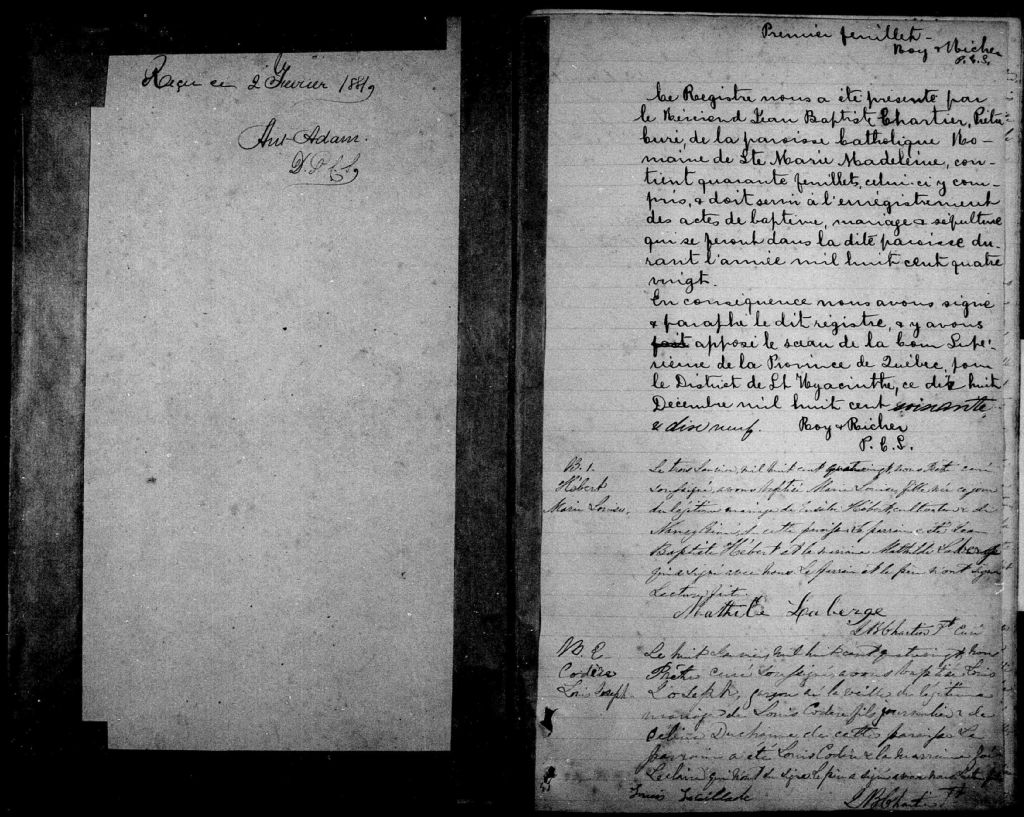 Reçu ce 2 Fevrier 1881
Ant Adam.
D. P. C. S.
Premier feuillet -
Roy & Richer
P. C. S.
Ce Registre nous a été présenté par
le Révérend Jean Baptiste Chartier, Prêtre
Curé, de la paroisse Catholique Ro-
maine de Ste Marie Madeleine, con-
tient quarante feuillets, celui-ci y com-
pris, & doit servir à l'enrégistrement
des actes de baptême, mariage & sépulture
qui se feront dans la dite paroisse du-
rant l'année mil huit cent quatre
vingt.
En conséquence nous avons signé
& paraphé le dit régistre, & y avons
fait apposé le sceau de la Cour Supé-
rieure de la Province de Québec, pour
le District de St Hyacinthe, ce dix huit
Décembre mil huit cent soixante
& dix neuf. Roy & Richer
P. C. S.
B. 1. Le trois Janvier, mil huit cent quatre vingt, nous Prêtre curé
Hébert soussigné, avons baptisé Marie Louise, fille née ce jour
Marie Louise. du légitime mariage de Hébert, cultivateur & de
de cette paroisse. Le parrain a été Jean
Baptiste Hébert et la marraine Mathilde Laberge
qui a signé avec nous. Le parrain et le père n'ont signé
Lecture fait.
Mathilde Laberge
J B Chartier Ptre Curé
B. 2 Le huit Janvier, mil huit cent quatre vingt, nous
Codère Prêtre curé soussigné, avons baptisé Louis
Louis Joseph Joseph, garçon né la veille du légitime
mariage de Louis Codère fils, journalier & de
Ducharme de cette paroisse. Le
parrain a été Louis Codère & la marraine
Leclaire qui n'ont su signer le père a signé avec nous
Louis
J B Chartier Ptre